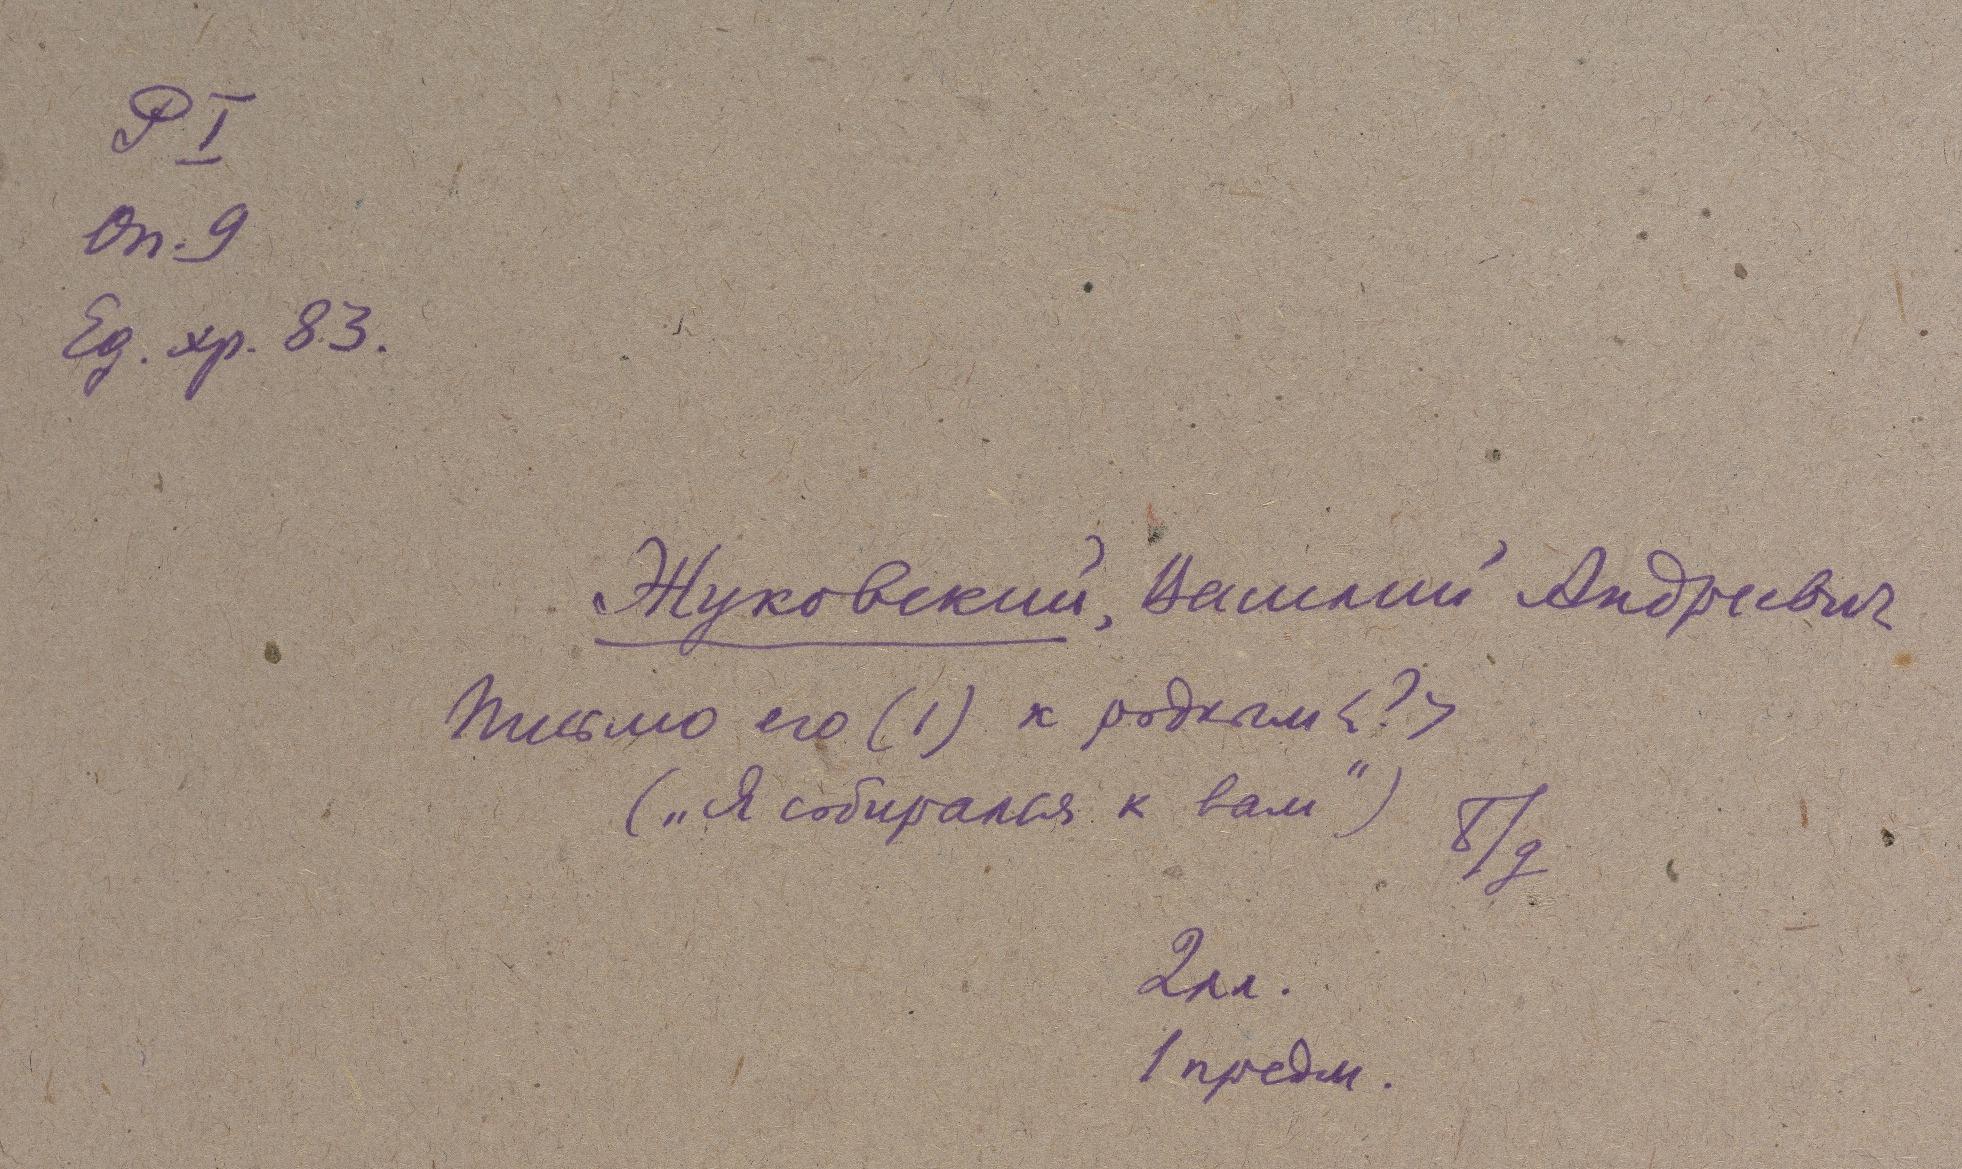 Р I
Оп. 9
Ед. хр. 83.
Жуковский, Василий Андреевич
Письмо его (1) к родным <?>
(„Я собирался к вам")
б/д
2 лл.
1 предм.